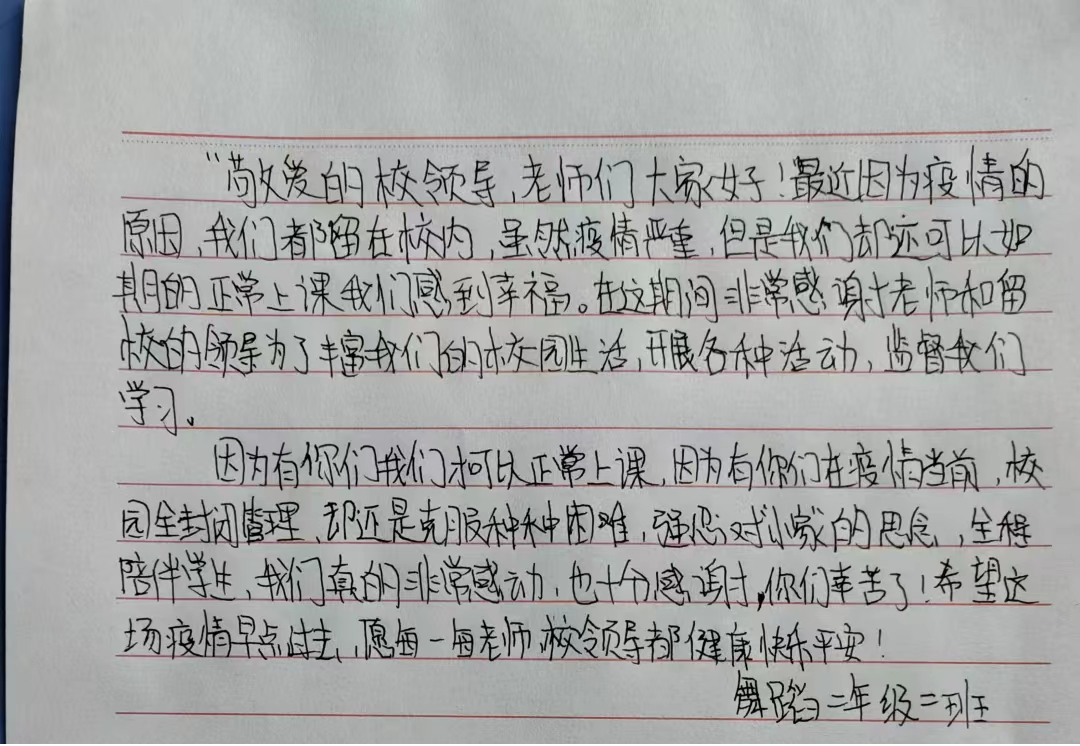 “敬爱的校领导,老师们大家好!最近因为疫情的
原因,我们都留在校内,虽然疫情严重,但是我们却还可以如
期的正常上课我们感到幸福。在这期间非常感谢老师和留
校的领导为了丰富我们的校园生活,开展各种活动,监督我们
学习。
因为有你们我们才可以正常上课,因为有你们在疫情当前,校
园全封闭管理,却还是克服种种困难,强忍对小家的思念,全程
陪伴学生,我们真的非常感动,也十分感谢,你们辛苦了!希望这
场疫情早点过去,愿每一每老师,校领导都健康快乐平安!
舞蹈二年级二班